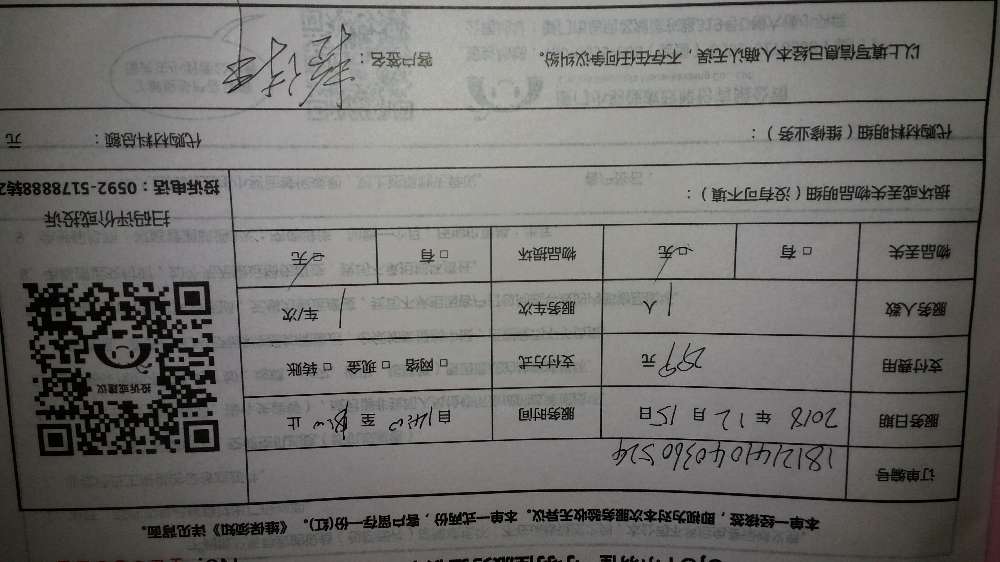 本单一经接签，即视为对本次服务验收无异议。本单一式两份，客户留存一份(红)。《维保须知》详见背面。
订单编号 1812141040360524
服务日期 2018 年 12 月 15日 服务时间 自14:00 至 止
支付费用 299 元 支付方式 □ 网络 □ 现金 □ 转账
服务人数 1 人 服务车次 1 车/次
物品丢失 □ 有 □ 无 物品损坏 □ 有 □ 无
投诉或建议
扫码评价或投诉
投诉电话：0592-5178888转2
损坏或丢失物品明细（没有可不填）：
代购材料明细（维修业务）： 代购材料总额： 元
以上填写信息已经本人确认无误，不存在任何争议纠纷。 客户签名：